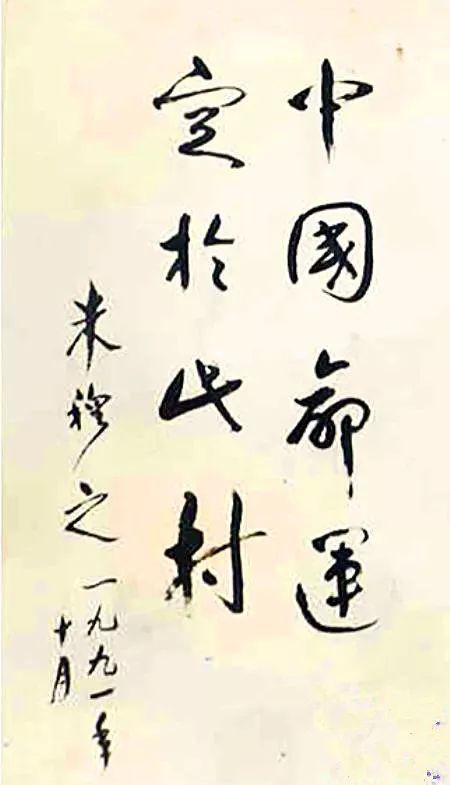 中國命運
定於此村
朱穆之 一九九一年
十月